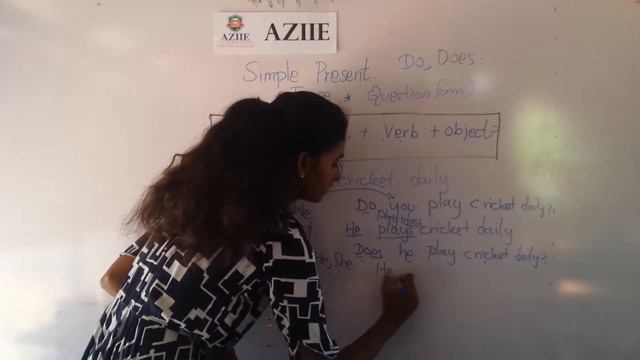 AZIIE AZIIE
Simple Present Do, Does.
Tense * Question form
+ verb + object?
cricket daily
Do you play cricket daily?
Play+does
He plays cricket daily.
Does he play cricket daily?
She He